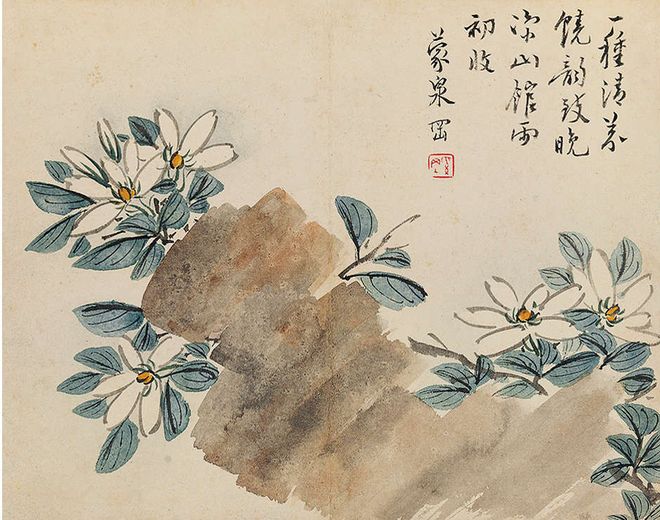 一種清芬
饒韻致晚
涼山館雨
初收
蒙泉岡